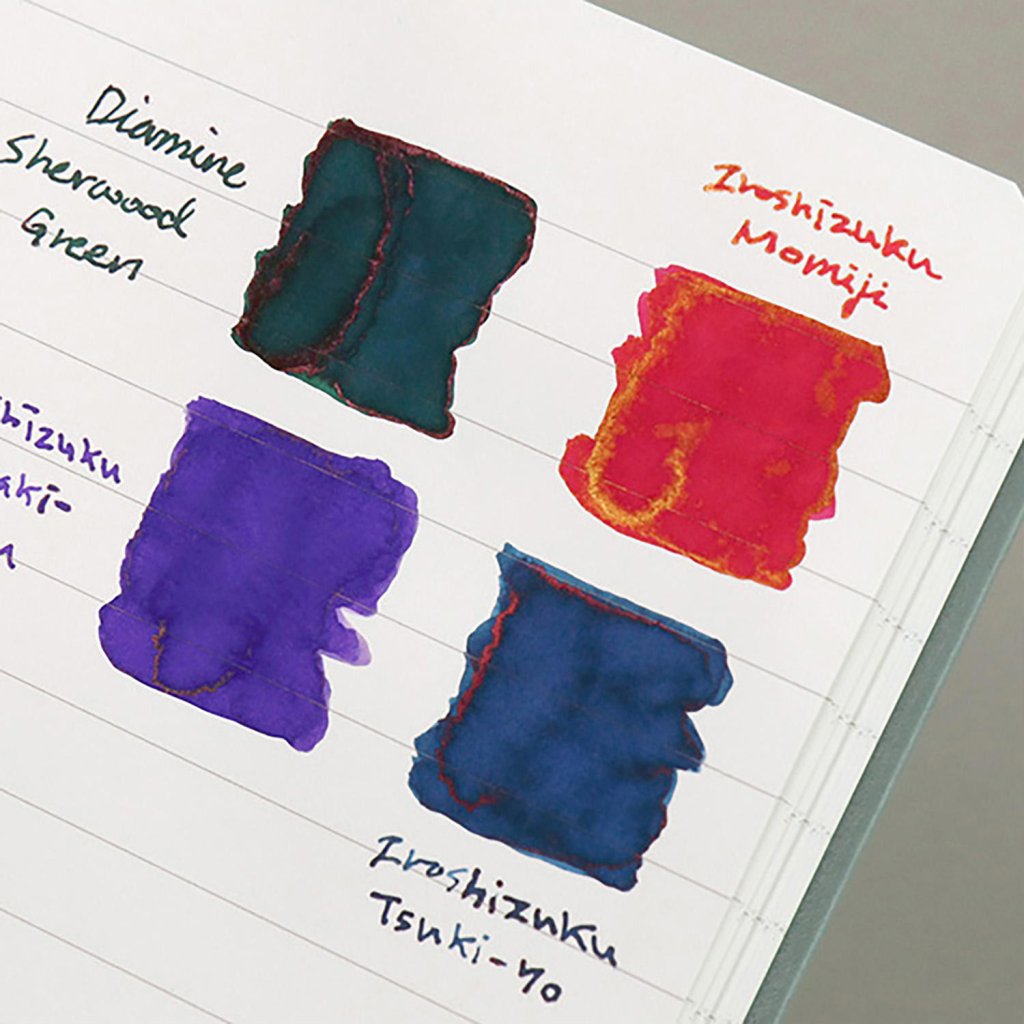 Diamine
Sherwood
Green
Iroshizuku
Momiji
Iroshizuku
Tsuki-yo